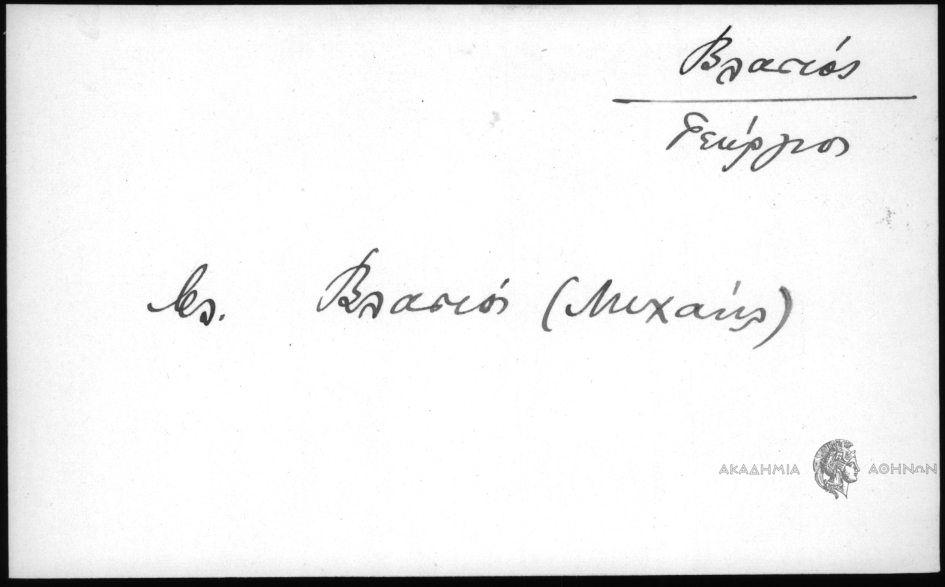 Βλαστός
Γεώργιος
βλ. Βλαστός (Μιχαήλ)
ΑΚΑΔΗΜΙΑ ΑΘΗΝΩΝ